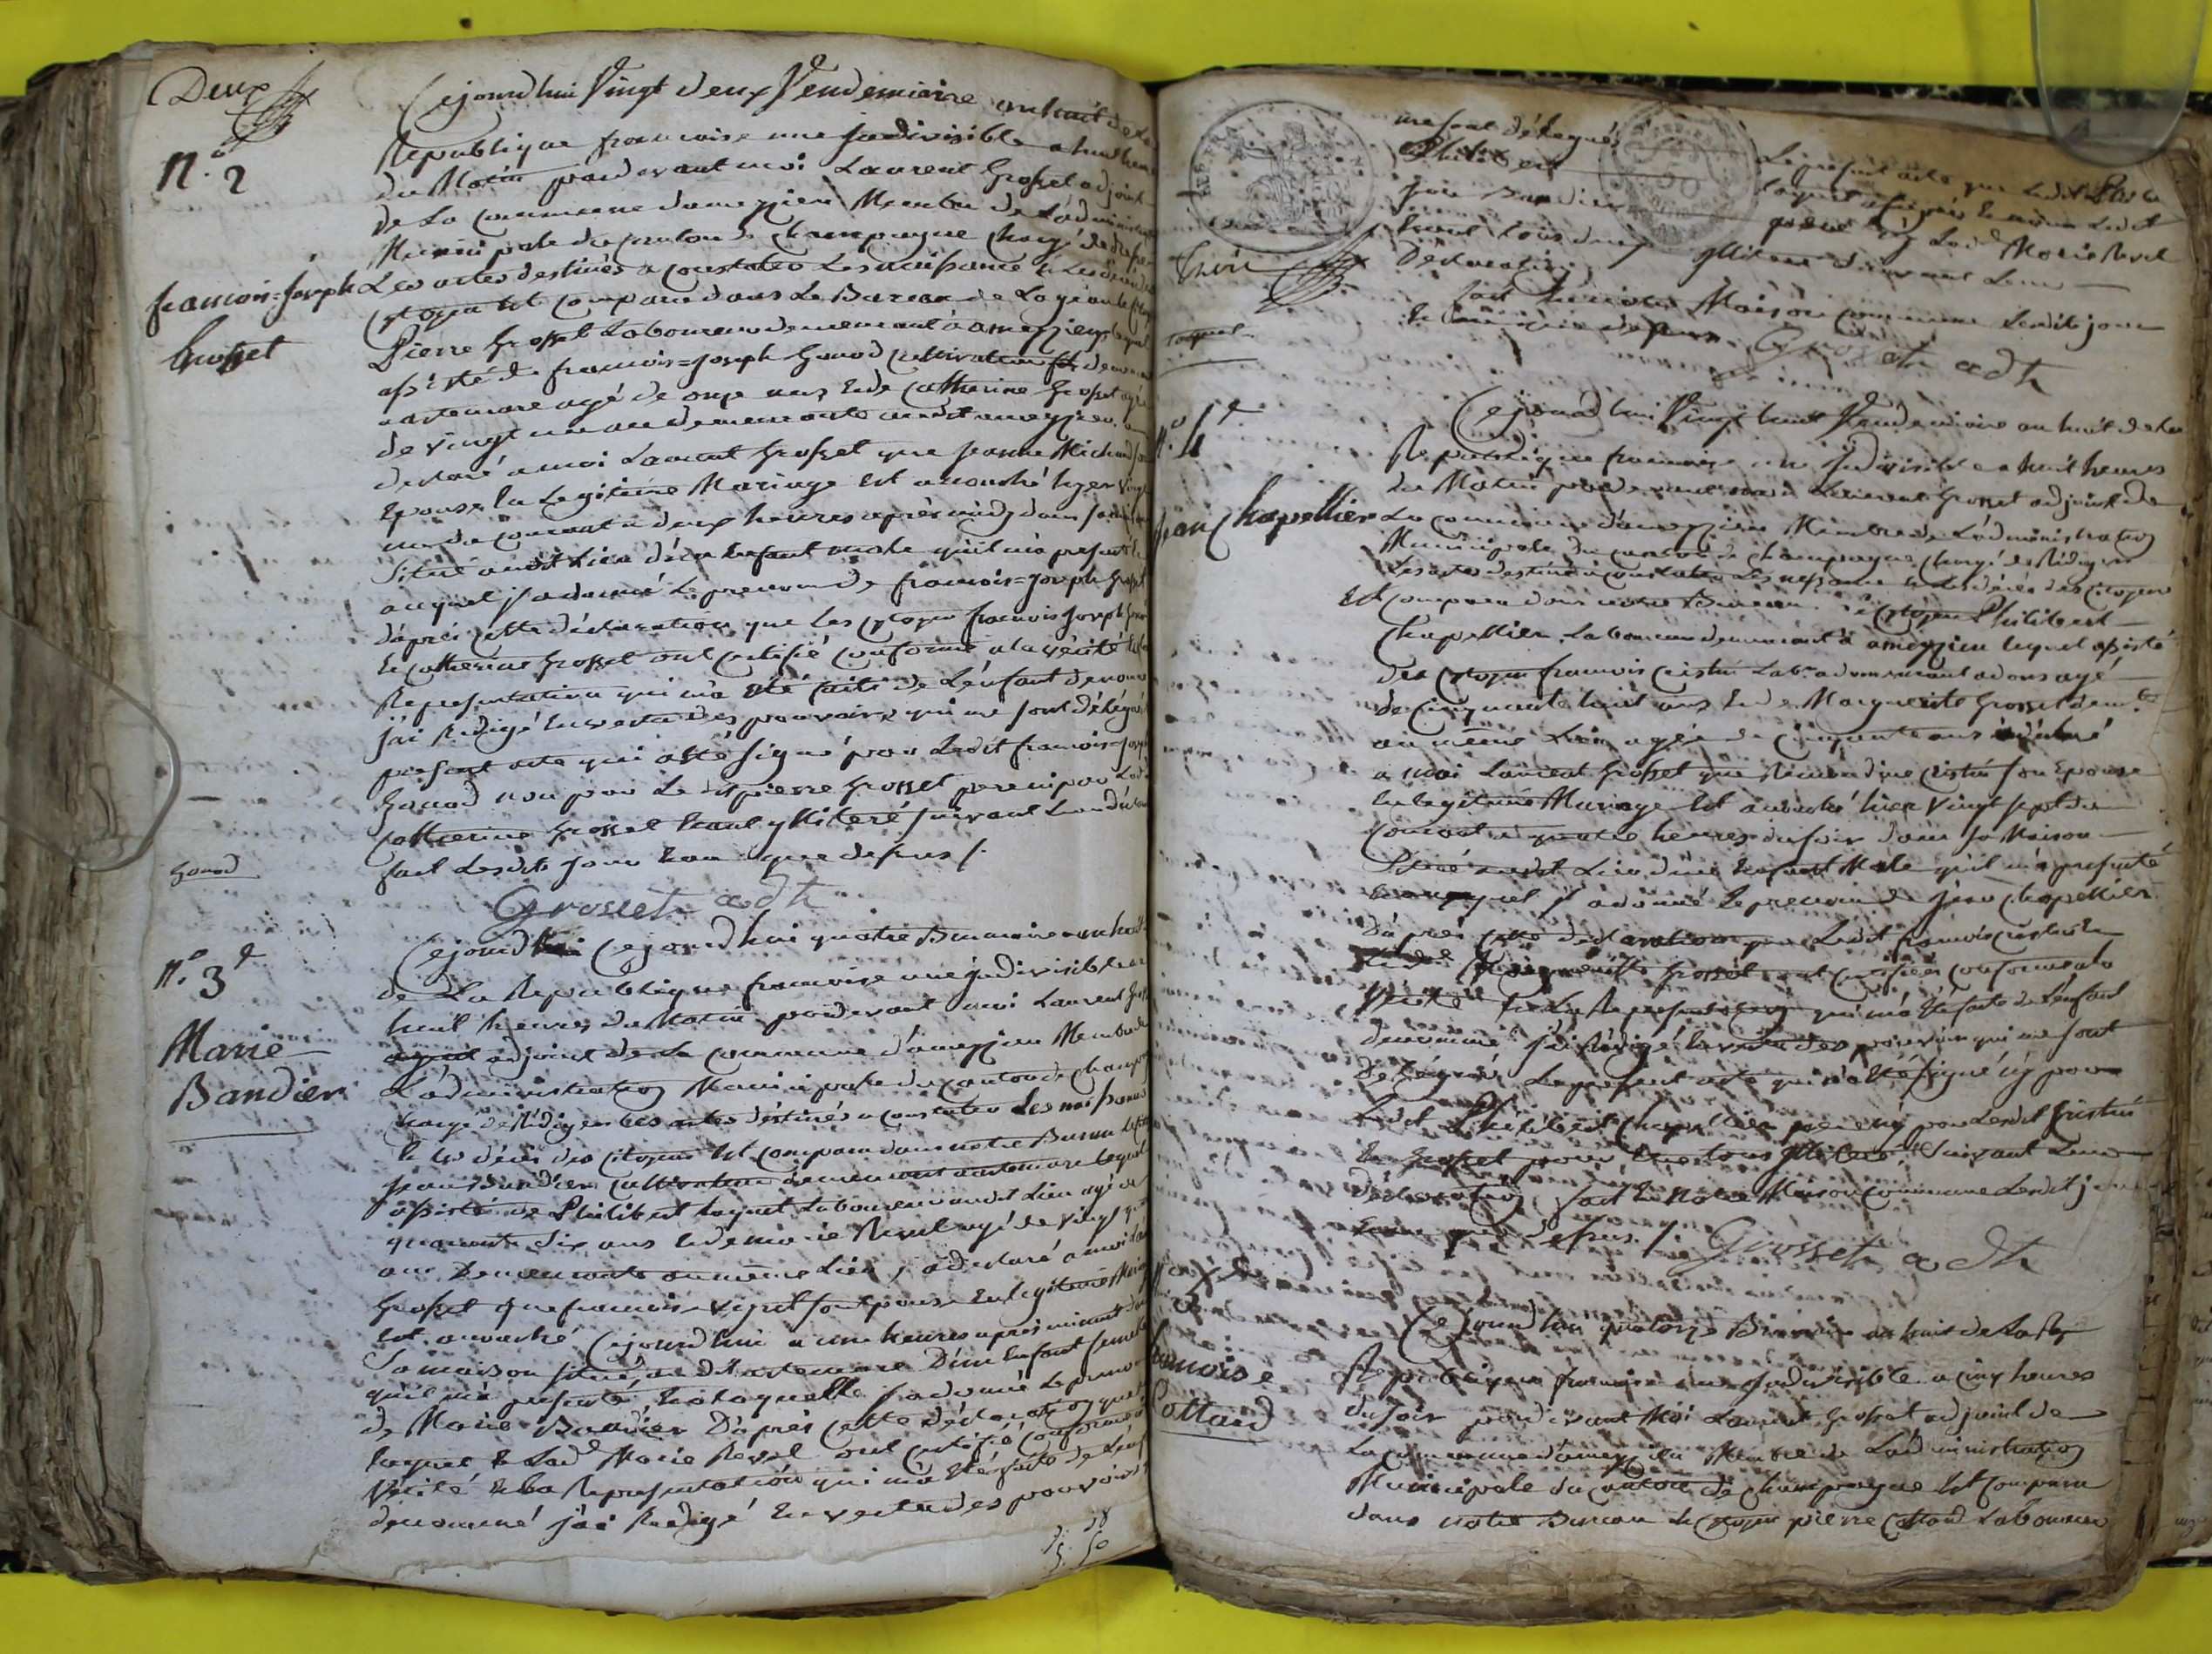 Deux
N.º 2
françois=Joseph
Grosset
Cejourdhui Vingt deux Vendemiaire an huit de la
Republique francoise une Indivisible a huit heure
du Matin pardevant moi Laurent Grosset adjoint
de La Commune dameyzieu Membre de Ladministra
Municipale du Canton de Champagne Chargé de
Les actes destinés a Constater Les naissance et Les
Citoyen Est Comparu dans Le Bureau de
Pierre Grosset Laboureur demeurant a ameyzieu
assisté de francois=Joseph Gonod Cultivateur
artemare agé de onze ans Et de Catherine Grosset agé
de vingt un an demeurante audit ameyzieu a
declaré a moi Laurent Grosset que Jeanne Michaud
Epouse En Legitime Mariage Est accouché hyer vingt
un du courant a deux heures après midy dans sa
Situé audit Lieu d'un Enfant male quil m'a presenté
auquel il a donné Le prenom de francois=Joseph Grosset
d'après Cette déclaration que Les Citoyen francois Joseph
Et Catherine Grosset ont Certifié Conforme a la vérité
Representation qui m'a été faite de L'enfant denommé
J'ai Rédigé En vertu des pouvoirs qui me sont délégués
present acte qui a été Signé par Ledit francois=Joseph
Gonod non par Le dit pierre Grosset pere ni par Lad
Catherine Grosset Suivant
fait Lesdits Jour Et an que dessus /.
Gonod
Grosset adt
N.º 3
Marie
Bandier
Cejourdhui Cejourdhui quatre Brumaire an huit
de La Republique francoise une Indivisible a
huit heures du Matin pardevant moi Laurent
agent adjoint de La Commune d'ameyzieu Membre de
L'administration Municipale du Canton de Champagne
Chargé de Rédiger Les actes déstinés a Constater Les naissance
Et Les décès des Citoyens Est Comparu dans notre Bureau
Jean Bandier Cultivateur demeurant a artemare Lequel
assisté de Philibert Loquet Laboureur audit Lieu agé de
quarante Six ans Et de Marie Revel agé de vingt
ans Demeurante au même Lieu a declaré a moi
Grosset que francoise Son Epouse En Legitime
Est accouché Cejourdhui a une heures après minuit
Sa maison Situé audit artemare D'un Enfant femelle
quil m'a presenté Et a Laquelle Il a donné Le prenom
de Marie Bandier D'après Cette déclaration que
Loquet Et Lad Marie Revel ont Certifié Conforme
Vérité Et La Representation qui m'a été faite de L'enfant
denommé J'ai Rédigé En vertu des pouvoirs
me sont délégués
Le present acte que Ledit
Philibert
Loquet a Signé
Jean Bandier
Lad Marie Revel
Etant tous deux
Illitere Suivant Leur
Déclaration
Trois
Loquet
fait En notre Maison commune Lesdits jour
Grosset adt
N.º 4
Jean Chapellier
Cejourdhui Vingt huit Vendemiaire an huit de La
Republique francoise une Indivisible a huit heures
du Matin pardevant moi Laurent Grosset adjoint de
La Commune d'ameyzieu Membre de L'administration
Municipale du Canton de Champagne Chargé de Rédiger
Les actes destiné a Constater Les naissance Et Les décès des Citoyens
Est Comparu dans notre Bureau Le Citoyen Philibert
Chapellier Laboureur demeurant a ameyzieu Lequel assisté
des Citoyen francois Labr demeurant agé
de Cinquante huit ans Et de Marguerite Grosset
au même Lieu agée de Cinquante ans a déclaré
a moi Laurent Grosset que Son Epouse
En Legitime Mariage Est accouché hier Vingt Sept du
Courant a quatre heures du Soir dans Sa Maison
Situé audit Lieu d'un Enfant Male quil m'a presenté
auquel Il a donné Le prenom de Jean Chapellier
D'après Cette déclaration que Ledit francois
Marguerite Grosset ont Certifiés Conforme a la
Verité Et La Representation qui m'a été faite de L'enfant
denommé J'ai Rédigé En vertu des pouvoirs qui me sont
délégués Le present acte qui n'a été Signé ny par
Ledit Philibert Chapellier pere ny par Ledit
Et Grosset pour Etre tous Illiteré Suivant Leur
déclaration fait En Notre Maison Commune Lesdit jour
Et an que dessus /.
Grosset adt
francoise
Cottard
Cejourdhui quatorze Brumaire an huit de La Re
Republique francoise une Indivisible a Cinq heures
du Soir pardevant Moi Laurent Grosset adjoint de
La Commune d'ameyzieu Membre de L'administration
Municipale du Canton de Champagne Est Comparu
dans notre Bureau Le Citoyen pierre Cottard Laboureur